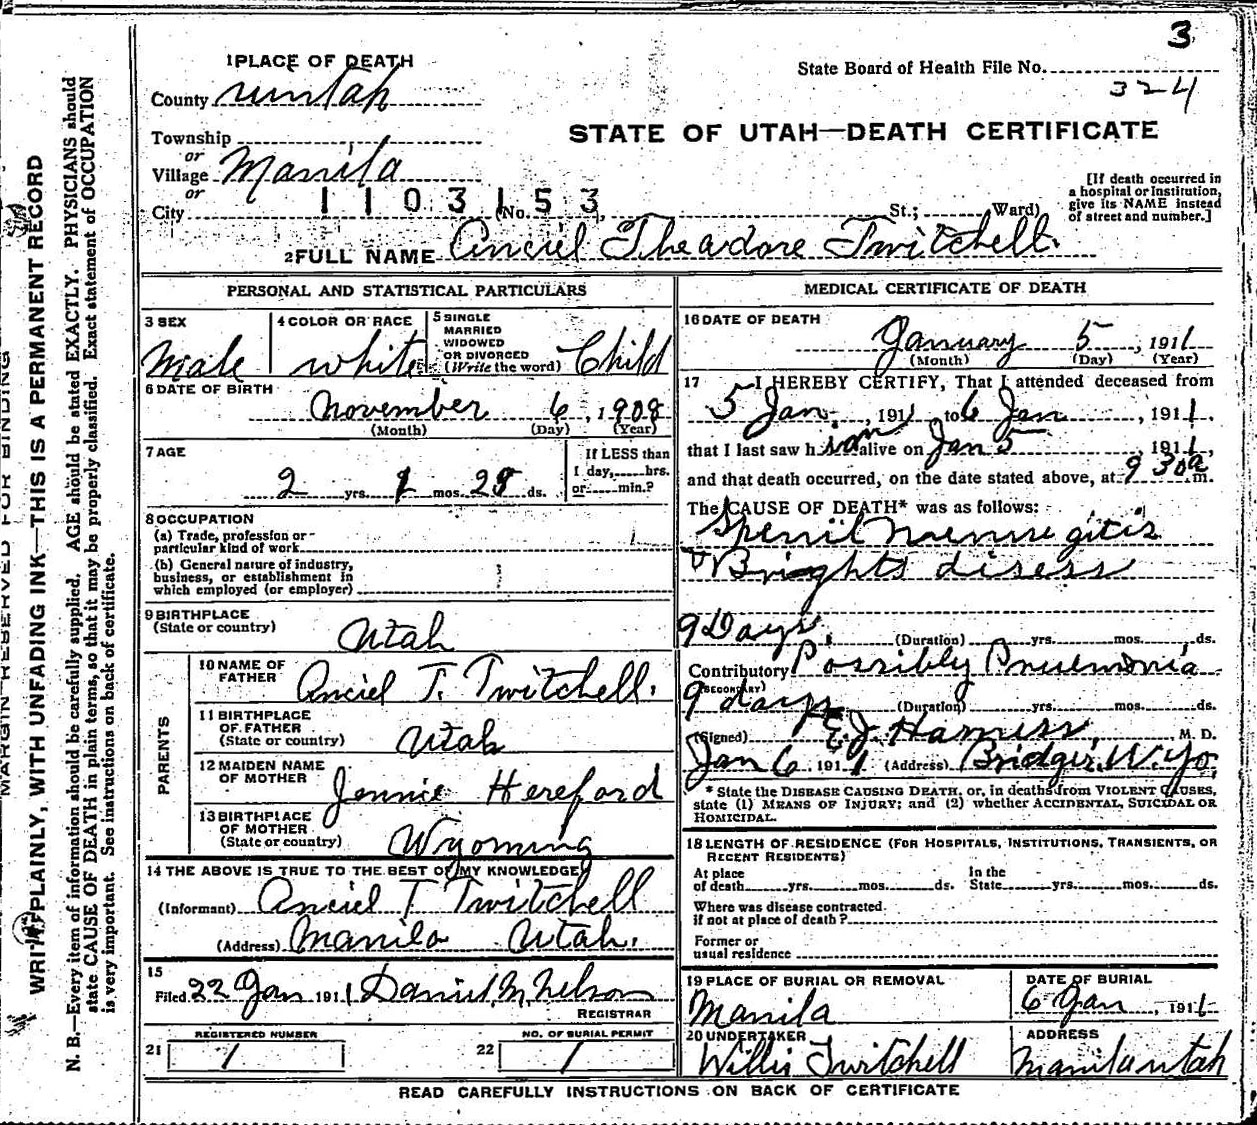 3
1 PLACE OF DEATH
State Board of Health File No.
324
County uintah
STATE OF UTAH—DEATH CERTIFICATE
Township
or
Village Manila
or
City
1103153
(No. St.; Ward)
[If death occurred in
a hospital or Institution,
give its NAME instead
of street and number.]
2 FULL NAME Anciel Theadore Twitchell.
PERSONAL AND STATISTICAL PARTICULARS
3 SEX
Male
4 COLOR OR RACE
white
5 SINGLE
MARRIED
WIDOWED
OR DIVORCED
(Write the word) Child
6 DATE OF BIRTH
November 6, 1908
(Month) (Day) (Year)
7 AGE
2 yrs. 1 mos. 28 ds.
If LESS than
1 day, hrs.
or min.?
8 OCCUPATION
(a) Trade, profession or
particular kind of work
(b) General nature of industry,
business, or establishment in
which employed (or employer)
9 BIRTHPLACE
(State or country)
Utah
PARENTS
10 NAME OF
FATHER
Anciel T. Twitchell.
11 BIRTHPLACE
OF FATHER
(State or country)
Utah
12 MAIDEN NAME
OF MOTHER
Jennie Hereford
13 BIRTHPLACE
OF MOTHER
(State or country)
Wyoming
14 THE ABOVE IS TRUE TO THE BEST OF MY KNOWLEDGE
(Informant) Anciel T Twitchell
(Address) Manila Utah.
15
Filed 22 Jan 1911 Daniel M Nelson
REGISTRAR
REGISTERED NUMBER
21 1
NO. OF BURIAL PERMIT
22 1
MEDICAL CERTIFICATE OF DEATH
16 DATE OF DEATH
January 5, 1911
(Month) (Day) (Year)
17 I HEREBY CERTIFY, That I attended deceased from
5 Jan, 1911 to 6 Jan, 1911,
that I last saw him alive on Jan 5, 1911,
and that death occurred, on the date stated above, at 9 30 a m.
The CAUSE OF DEATH* was as follows:
Spenil Menne gitis
Brights disess
9 Days (Duration) yrs. mos. ds.
Contributory Possibly Pneumonia
(SECONDARY)
9 days (Duration) yrs. mos. ds.
(Signed) E. J. Harness, M. D.
Jan 6, 1911 (Address) Bridger, Wyo,
* State the DISEASE CAUSING DEATH, or, in deaths from VIOLENT CAUSES,
state (1) MEANS OF INJURY; and (2) whether ACCIDENTAL, SUICIDAL OR
HOMICIDAL.
18 LENGTH OF RESIDENCE (FOR HOSPITALS, INSTITUTIONS, TRANSIENTS, OR
RECENT RESIDENTS)
At place
of death yrs. mos. ds.
In the
State yrs. mos. ds.
Where was disease contracted.
if not at place of death?
Former or
usual residence
19 PLACE OF BURIAL OR REMOVAL
Manila
DATE OF BURIAL
6 Jan, 1911
20 UNDERTAKER
Willis Twitchell
ADDRESS
Manila utah
READ CAREFULLY INSTRUCTIONS ON BACK OF CERTIFICATE
MARGIN RESERVED FOR BINDING
WRITE PLAINLY, WITH UNFADING INK—THIS IS A PERMANENT RECORD
N. B.—Every item of information should be carefully supplied. AGE should be stated EXACTLY. PHYSICIANS should
state CAUSE OF DEATH in plain terms, so that it may be properly classified. Exact statement of OCCUPATION
is very important. See instructions on back of certificate.